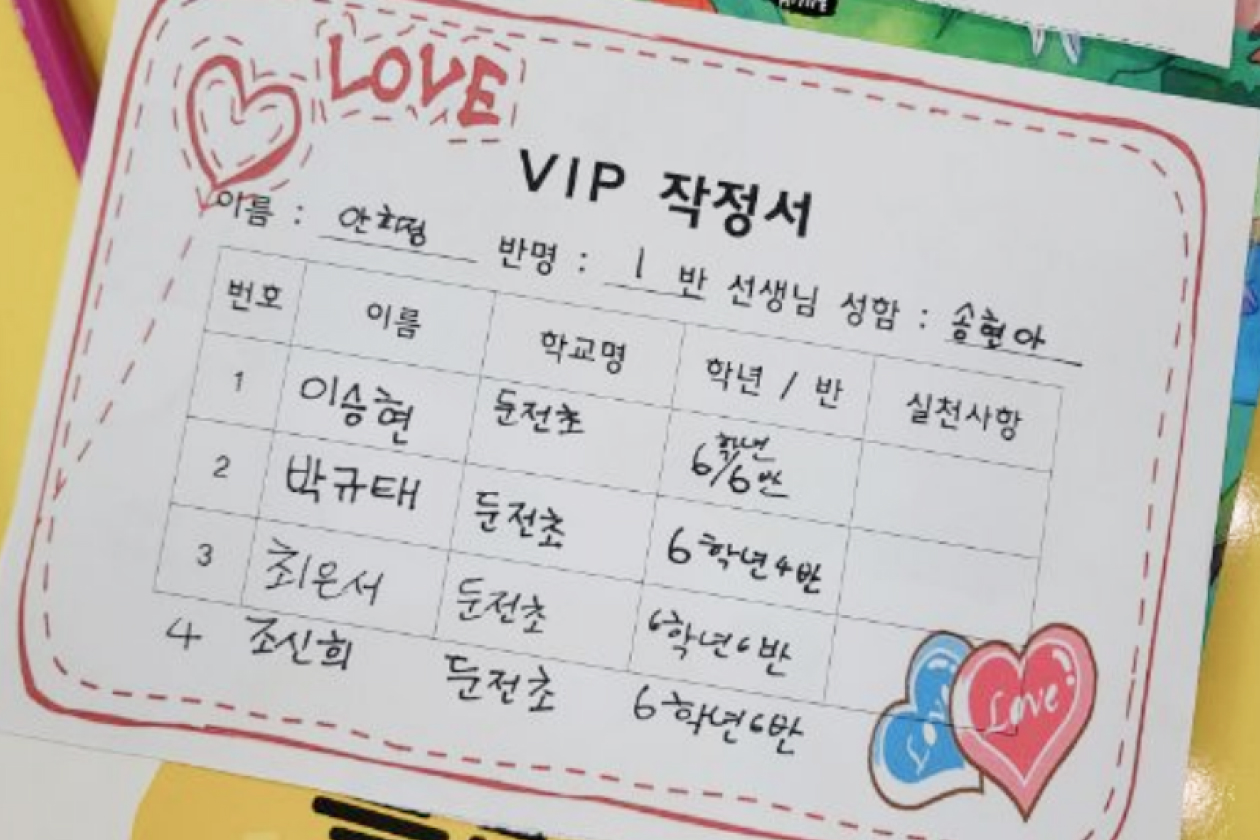 LOVE
VIP 작정서
이름 : 안희정 반명 : 1 반 선생님 성함 : 송현아
번호 이름 학교명 학년 / 반 실천사항
1 이승현 둔전초 6학년/6반
2 박규태 둔전초 6학년4반
3 최은서 둔전초 6학년6반
4 조신희 둔전초 6학년6반
Love Love